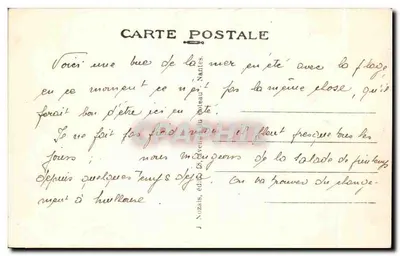 CARTE POSTALE
Voici une vue de la mer en été avec la plage,
en ce moment ce n'est pas la même chose, qu'il
ferait bon d'être ici en été.
Il ne fait pas froid mais il pleut presque tous les
jours ; nous mangeons de la salade de printemps
depuis quelques temps déjà. On va trouver du change-
ment à
J. Nozais, édit., Nantes